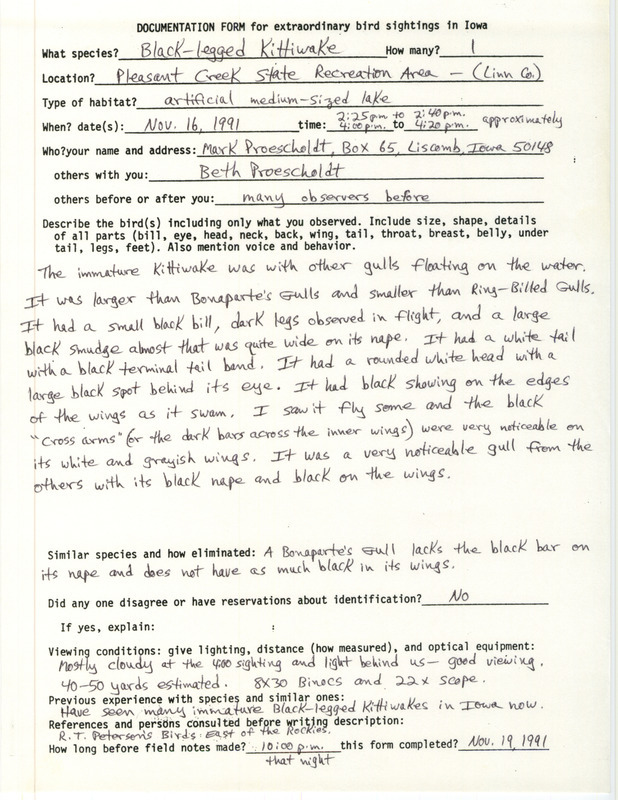 DOCUMENTATION FORM for extraordinary bird sightings in Iowa
What species? Black-legged Kittiwake How many? 1
Location? Pleasant Creek State Recreation Area - (Linn Co.)
Type of habitat? artificial medium-sized lake
When? date(s): Nov. 16, 1991 time: 2:25 pm to 2:40 p.m. approximately
4:00 p.m. to 4:20 p.m.
Who?your name and address: Mark Proescholdt, Box 65, Liscomb, Iowa 50148
others with you: Beth Proescholdt
others before or after you: many observers before
Describe the bird(s) including only what you observed. Include size, shape, details
of all parts (bill, eye, head, neck, back, wing, tail, throat, breast, belly, under
tail, legs, feet). Also mention voice and behavior.
The immature Kittiwake was with other gulls floating on the water.
It was larger than Bonaparte's Gulls and smaller than Ring-Billed Gulls.
It had a small black bill, dark legs observed in flight, and a large
black smudge almost that was quite wide on its nape. It had a white tail
with a black terminal tail band. It had a rounded white head with a
large black spot behind its eye. It had black showing on the edges
of the wings as it swam. I saw it fly some and the black
"cross arms" (or the dark bars across the inner wings) were very noticeable on
its white and grayish wings. It was a very noticeable gull from the
others with its black nape and black on the wings.
Similar species and how eliminated: A Bonaparte's Gull lacks the black bar on
its nape and does not have as much black in its wings.
Did any one disagree or have reservations about identification? No
If yes, explain:
Viewing conditions: give lighting, distance (how measured), and optical equipment:
Mostly cloudy at the 4:00 sighting and light behind us - good viewing.
40-50 yards estimated. 8X30 Binocs and 22x scope.
Previous experience with species and similar ones:
Have seen many immature Black-legged Kittiwakes in Iowa now.
References and persons consulted before writing description:
R.T. Peterson's Birds: East of the Rockies.
How long before field notes made? 10:00 p.m. this form completed? Nov. 19, 1991
that night